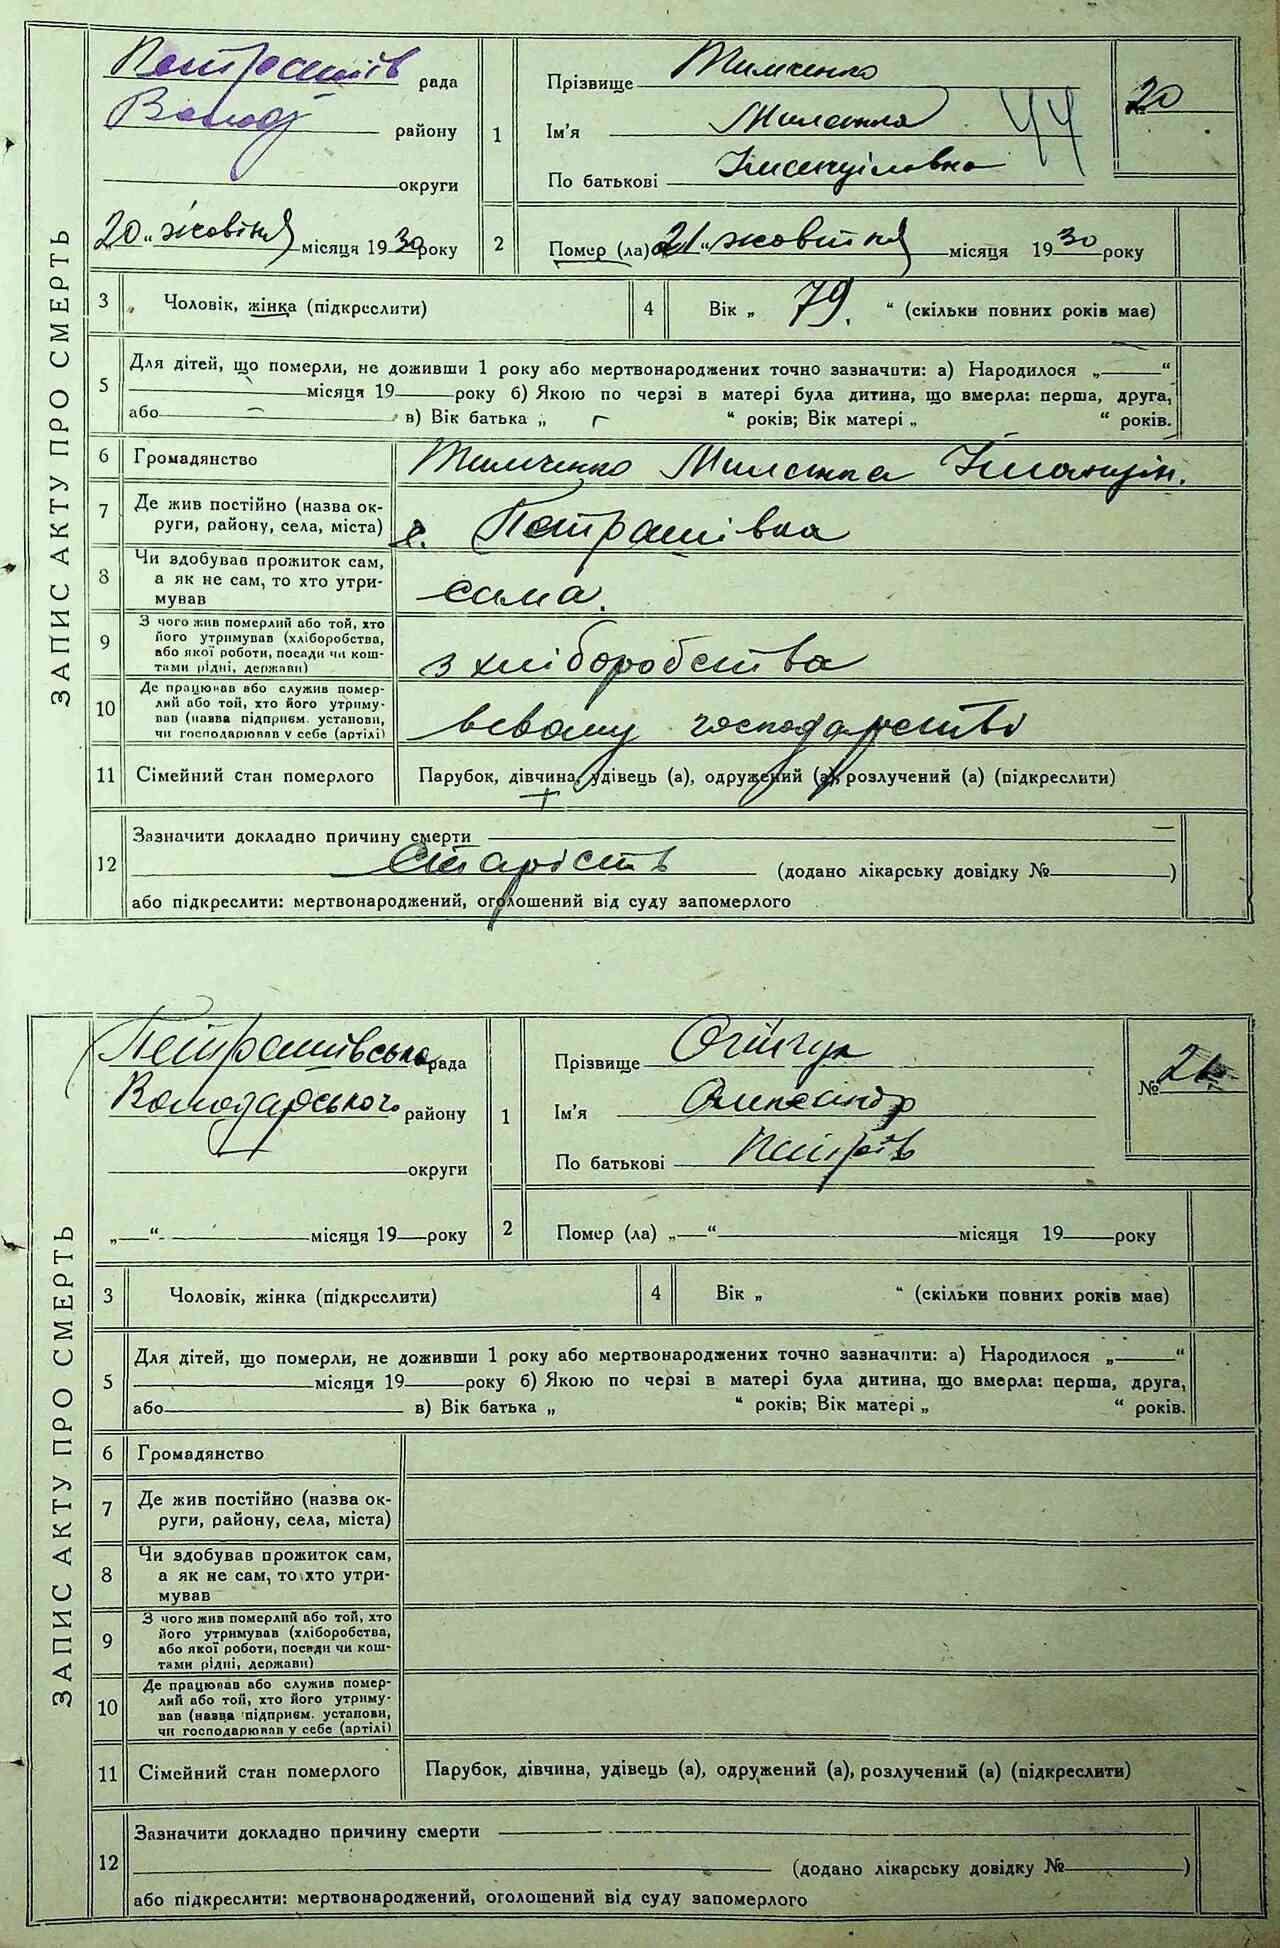 ЗАПИС АКТУ ПРО СМЕРТЬ
Петрашів рада
Волод району
округи
20 „ жовтня місяця 1930 року
1 Прізвище Тимченко
Ім'я Миланка
По батькові
№ 20
44
2 Помер (ла) „21“ жовтня місяця 1930 року
3 Чоловік, жінка (підкреслити)
4 Вік „ 79. “ (скільки повних років має)
5 Для дітей, що померли, не доживши 1 року або мертвонароджених точно зазначити: а) Народилося „ “
місяця 19 року б) Якою по черзі в матері була дитина, що вмерла: перша, друга,
або в) Вік батька „ “ років; Вік матері „ “ років.
6 Громадянство Тимченко Миланка
7 Де жив постійно (назва ок-
руги, району, села, міста) с. Петрашівка
8 Чи здобував прожиток сам,
а як не сам, то хто утри-
мував сама.
9 З чого жив померлий або той, хто
його утримував (хліборобства,
або якої роботи, посади чи кош-
тами рідні, держави) з хліборобства
10 Де працював або служив помер-
лий або той, хто його утриму-
вав (назва підприєм. установи,
чи господарював у себе (артілі) всвому господарстві
11 Сімейний стан померлого Парубок, дівчина, удівець (а), одружений (а), розлучений (а) (підкреслити)
12 Зазначити докладно причину смерти
старість (додано лікарську довідку № )
або підкреслити: мертвонароджений, оголошений від суду запомерлого
ЗАПИС АКТУ ПРО СМЕРТЬ
Петрашівська рада
Володарського району
округи
„ “ місяця 19 року
1 Прізвище
Ім'я Олександр
По батькові Петрів
№ 21
2 Помер (ла) „ “ місяця 19 року
3 Чоловік, жінка (підкреслити)
4 Вік „ “ (скільки повних років має)
5 Для дітей, що померли, не доживши 1 року або мертвонароджених точно зазначити: а) Народилося „ “
місяця 19 року б) Якою по черзі в матері була дитина, що вмерла: перша, друга,
або в) Вік батька „ “ років; Вік матері „ “ років.
6 Громадянство
7 Де жив постійно (назва ок-
руги, району, села, міста)
8 Чи здобував прожиток сам,
а як не сам, то хто утри-
мував
9 З чого жив померлий або той, хто
його утримував (хліборобства,
або якої роботи, посади чи кош-
тами рідні, держави)
10 Де працював або служив помер-
лий або той, хто його утриму-
вав (назва підприєм. установи,
чи господарював у себе (артілі)
11 Сімейний стан померлого Парубок, дівчина, удівець (а), одружений (а), розлучений (а) (підкреслити)
12 Зазначити докладно причину смерти
(додано лікарську довідку № )
або підкреслити: мертвонароджений, оголошений від суду запомерлого